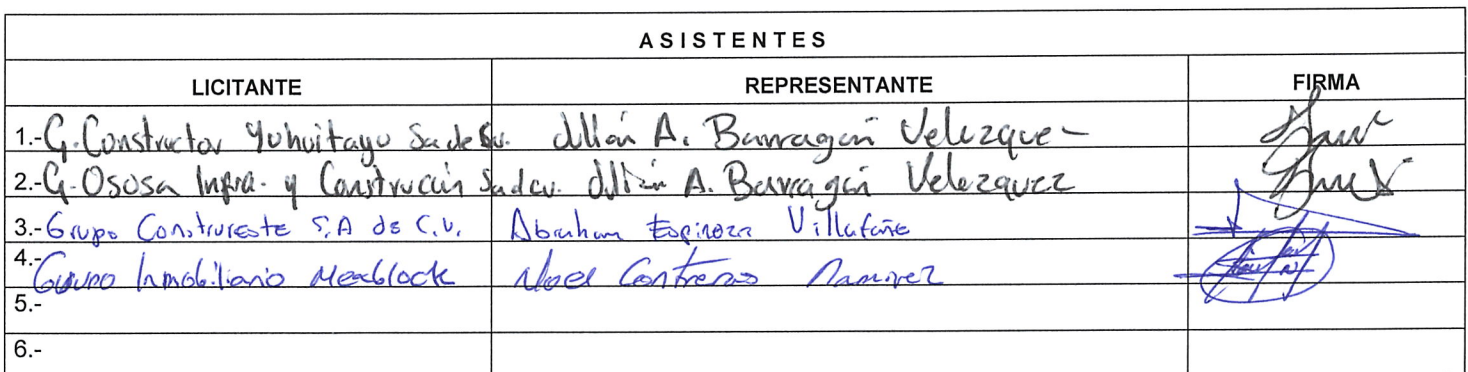 ASISTENTES
LICITANTE REPRESENTANTE FIRMA
1.- G. Constructor Yohuitayo Sa de Cv. A. Barragán Velazquez
2.- G. Ososa Infra. y Construcción Sa de cv. A. Barragán Velezquez
3.- Grupo Construreste S.A de C.V. Abraham Espinoza Villafañe
4.- Grupo Inmobiliario Mexblock Noel Contreras Ramirez
5.-
6.-